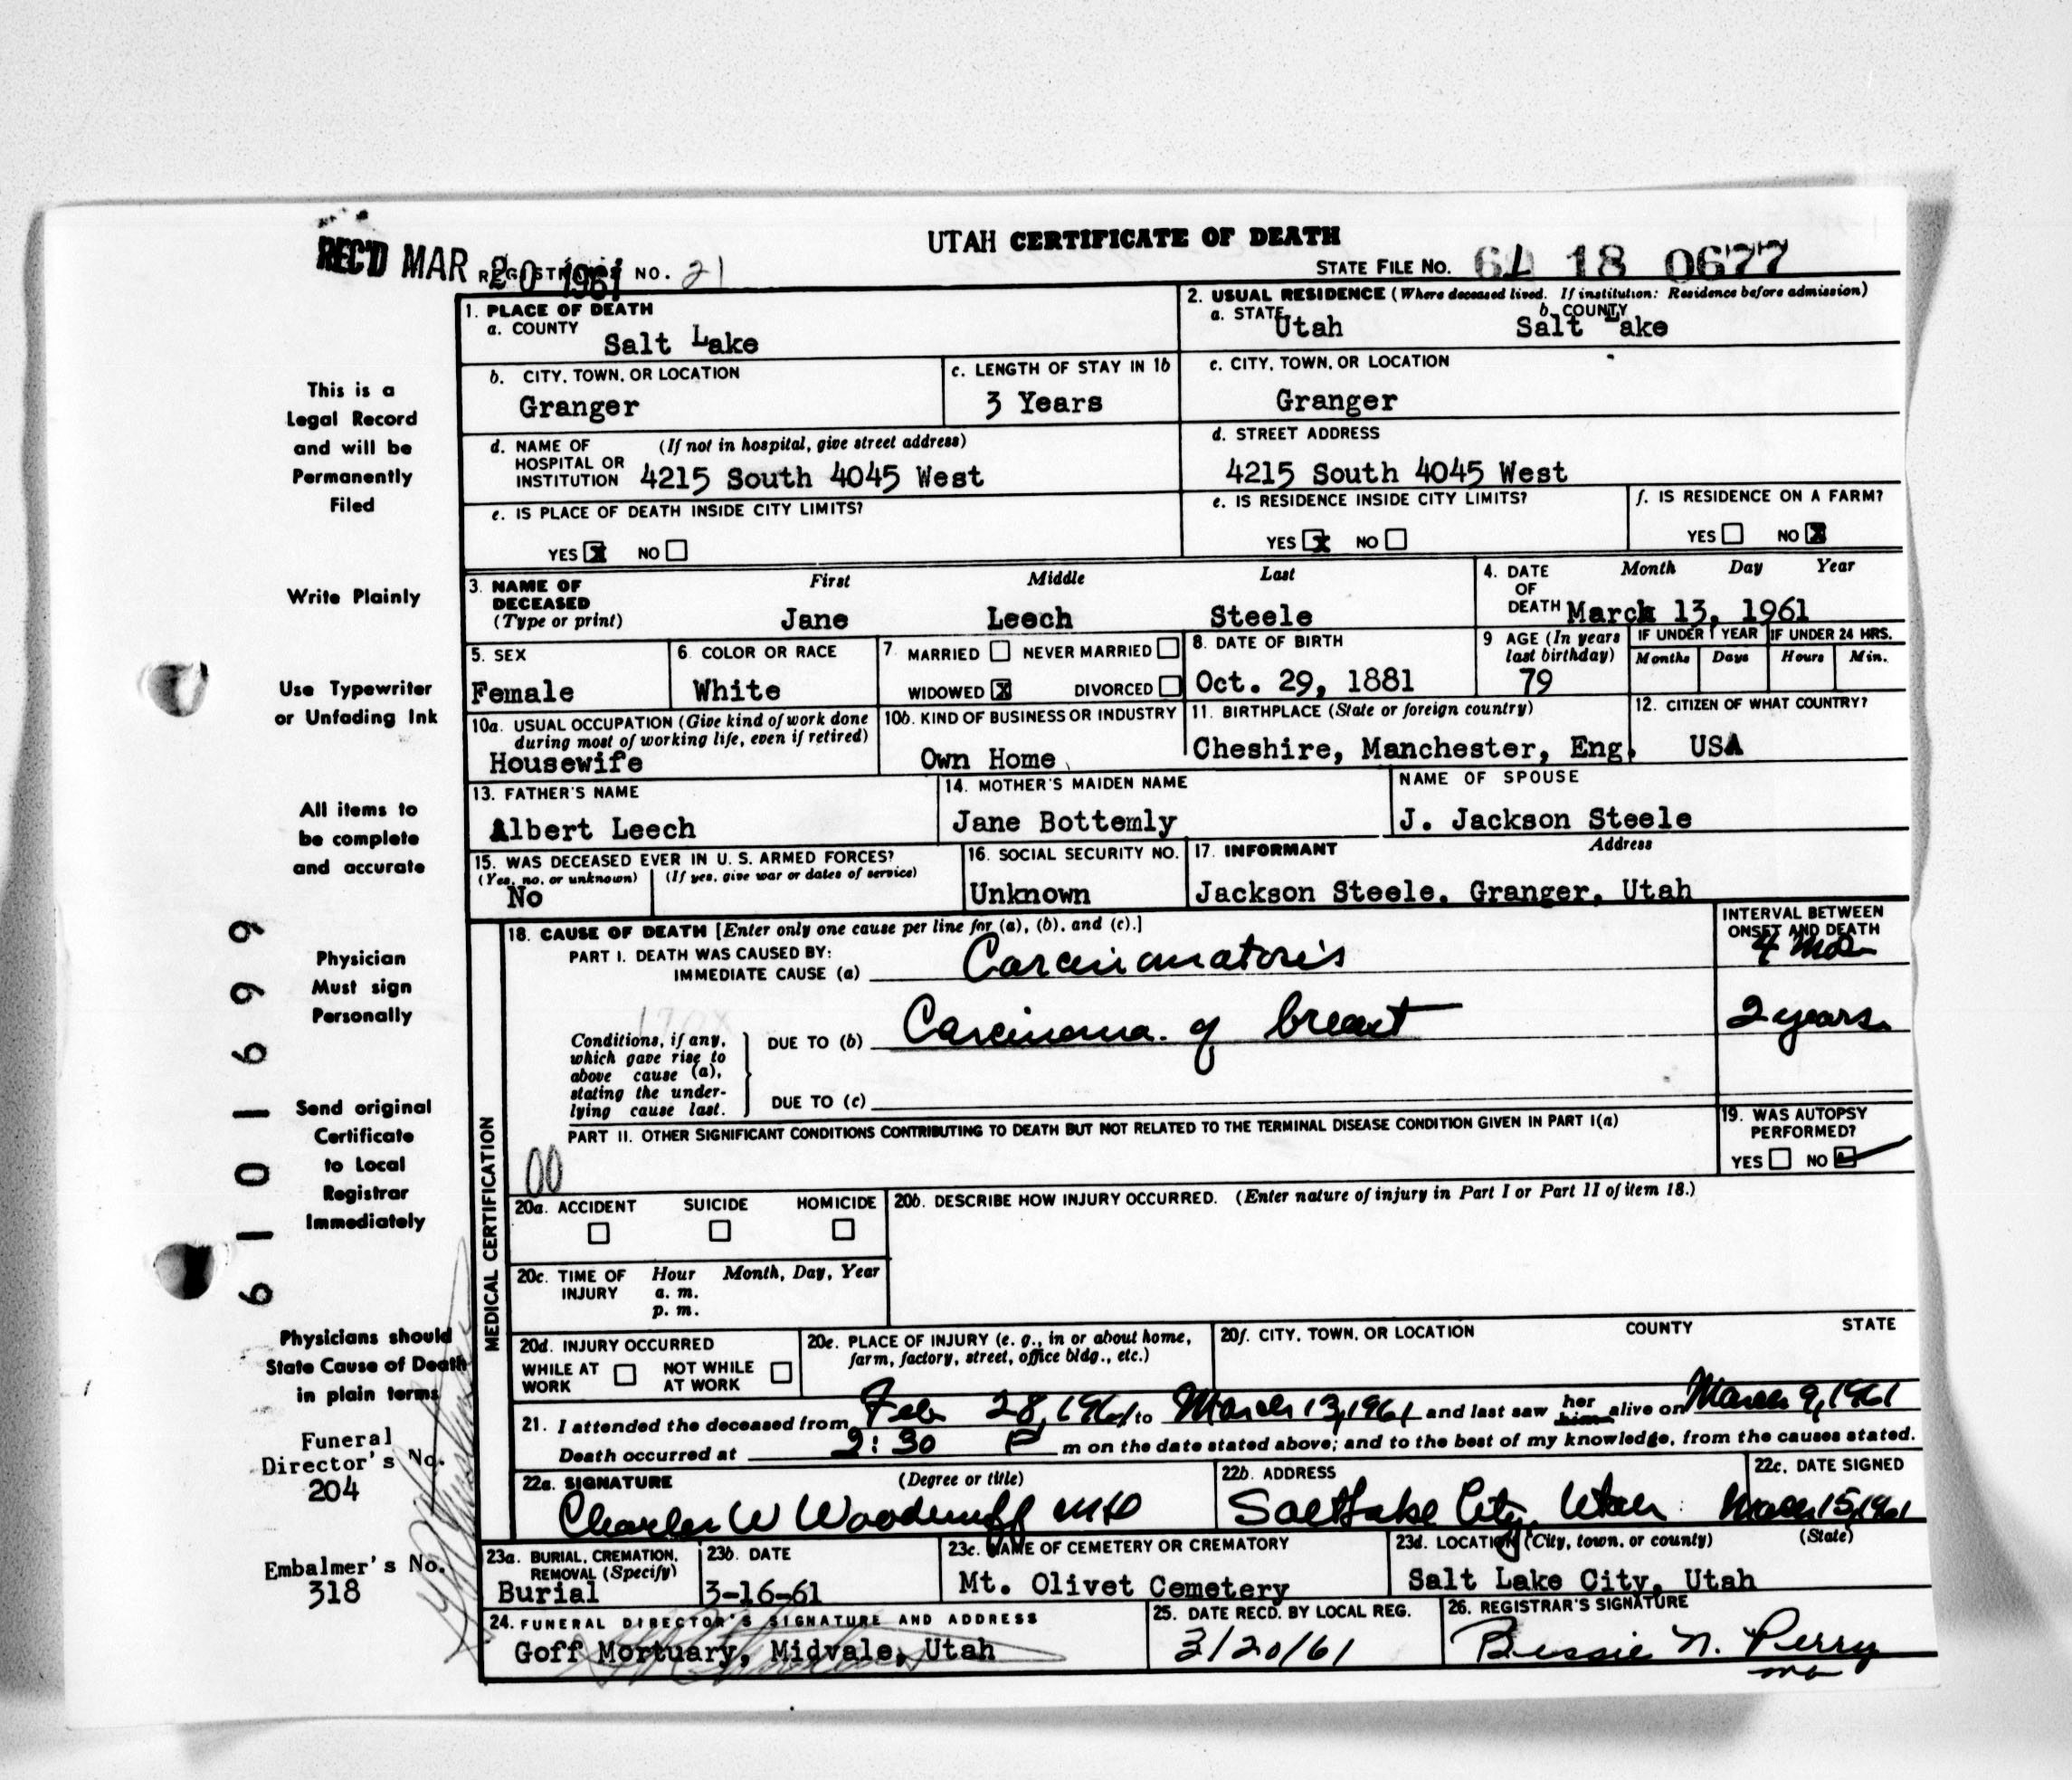 UTAH CERTIFICATE OF DEATH
REC'D MAR 20 1961 REGISTRAR'S NO. 21
STATE FILE No. 61 18 0677
1. PLACE OF DEATH
a. COUNTY Salt Lake
2. USUAL RESIDENCE (Where deceased lived. If institution: Residence before admission)
a. STATE Utah b. COUNTY Salt Lake
b. CITY, TOWN, OR LOCATION Granger
c. LENGTH OF STAY IN 1b 3 Years
c. CITY, TOWN, OR LOCATION Granger
d. NAME OF HOSPITAL OR INSTITUTION (If not in hospital, give street address)
4215 South 4045 West
d. STREET ADDRESS
4215 South 4045 West
e. IS PLACE OF DEATH INSIDE CITY LIMITS?
YES X NO
e. IS RESIDENCE INSIDE CITY LIMITS?
YES X NO
f. IS RESIDENCE ON A FARM?
YES NO X
3. NAME OF DECEASED (Type or print)
First Middle Last
Jane Leech Steele
4. DATE OF DEATH Month Day Year
March 13, 1961
5. SEX
Female
6. COLOR OR RACE
White
7. MARRIED NEVER MARRIED
WIDOWED X DIVORCED
8. DATE OF BIRTH
Oct. 29, 1881
9 AGE (In years last birthday)
79
IF UNDER 1 YEAR
Months Days
IF UNDER 24 HRS.
Hours Min.
10a. USUAL OCCUPATION (Give kind of work done during most of working life, even if retired)
Housewife
10b. KIND OF BUSINESS OR INDUSTRY
Own Home
11. BIRTHPLACE (State or foreign country)
Cheshire, Manchester, Eng.
12. CITIZEN OF WHAT COUNTRY?
USA
13. FATHER'S NAME
Albert Leech
14. MOTHER'S MAIDEN NAME
Jane Bottemly
NAME OF SPOUSE
J. Jackson Steele
15. WAS DECEASED EVER IN U. S. ARMED FORCES?
(Yes, no, or unknown) (If yes, give war or dates of service)
No
16. SOCIAL SECURITY NO.
Unknown
17. INFORMANT Address
Jackson Steele, Granger, Utah
MEDICAL CERTIFICATION
18. CAUSE OF DEATH [Enter only one cause per line for (a), (b), and (c).]
INTERVAL BETWEEN ONSET AND DEATH
PART I. DEATH WAS CAUSED BY:
IMMEDIATE CAUSE (a) Carcinomatosis 4 mos
170X
Conditions, if any, which gave rise to above cause (a), stating the underlying cause last.
DUE TO (b) Carcinoma of breast 2 years
DUE TO (c)
PART II. OTHER SIGNIFICANT CONDITIONS CONTRIBUTING TO DEATH BUT NOT RELATED TO THE TERMINAL DISEASE CONDITION GIVEN IN PART I(a)
00
19. WAS AUTOPSY PERFORMED?
YES NO
20a. ACCIDENT SUICIDE HOMICIDE
20b. DESCRIBE HOW INJURY OCCURRED. (Enter nature of injury in Part I or Part II of item 18.)
20c. TIME OF INJURY Hour Month, Day, Year
a. m.
p. m.
20d. INJURY OCCURRED
WHILE AT WORK NOT WHILE AT WORK
20e. PLACE OF INJURY (e. g., in or about home, farm, factory, street, office bldg., etc.)
20f. CITY, TOWN, OR LOCATION COUNTY STATE
21. I attended the deceased from Feb 28, 1961 to March 13, 1961 and last saw her him alive on March 9, 1961
Death occurred at 2:30 P m on the date stated above; and to the best of my knowledge, from the causes stated.
22a. SIGNATURE (Degree or title)
Charles W Woodruff MD
22b. ADDRESS
Salt Lake City, Utah
22c. DATE SIGNED
March 15, 1961
23a. BURIAL, CREMATION, REMOVAL (Specify)
Burial
23b. DATE
3-16-61
23c. NAME OF CEMETERY OR CREMATORY
Mt. Olivet Cemetery
23d. LOCATION (City, town, or county) (State)
Salt Lake City, Utah
24. FUNERAL DIRECTOR'S SIGNATURE AND ADDRESS
Goff Mortuary, Midvale, Utah
25. DATE RECD. BY LOCAL REG.
3/20/61
26. REGISTRAR'S SIGNATURE
Bessie N. Perry
This is a
Legal Record
and will be
Permanently
Filed
Write Plainly
Use Typewriter
or Unfading Ink
All items to
be complete
and accurate
Physician
Must sign
Personally
Send original
Certificate
to Local
Registrar
Immediately
Physicians should
State Cause of Death
in plain terms
Funeral
Director's No.
204
Embalmer's No.
318
6101699